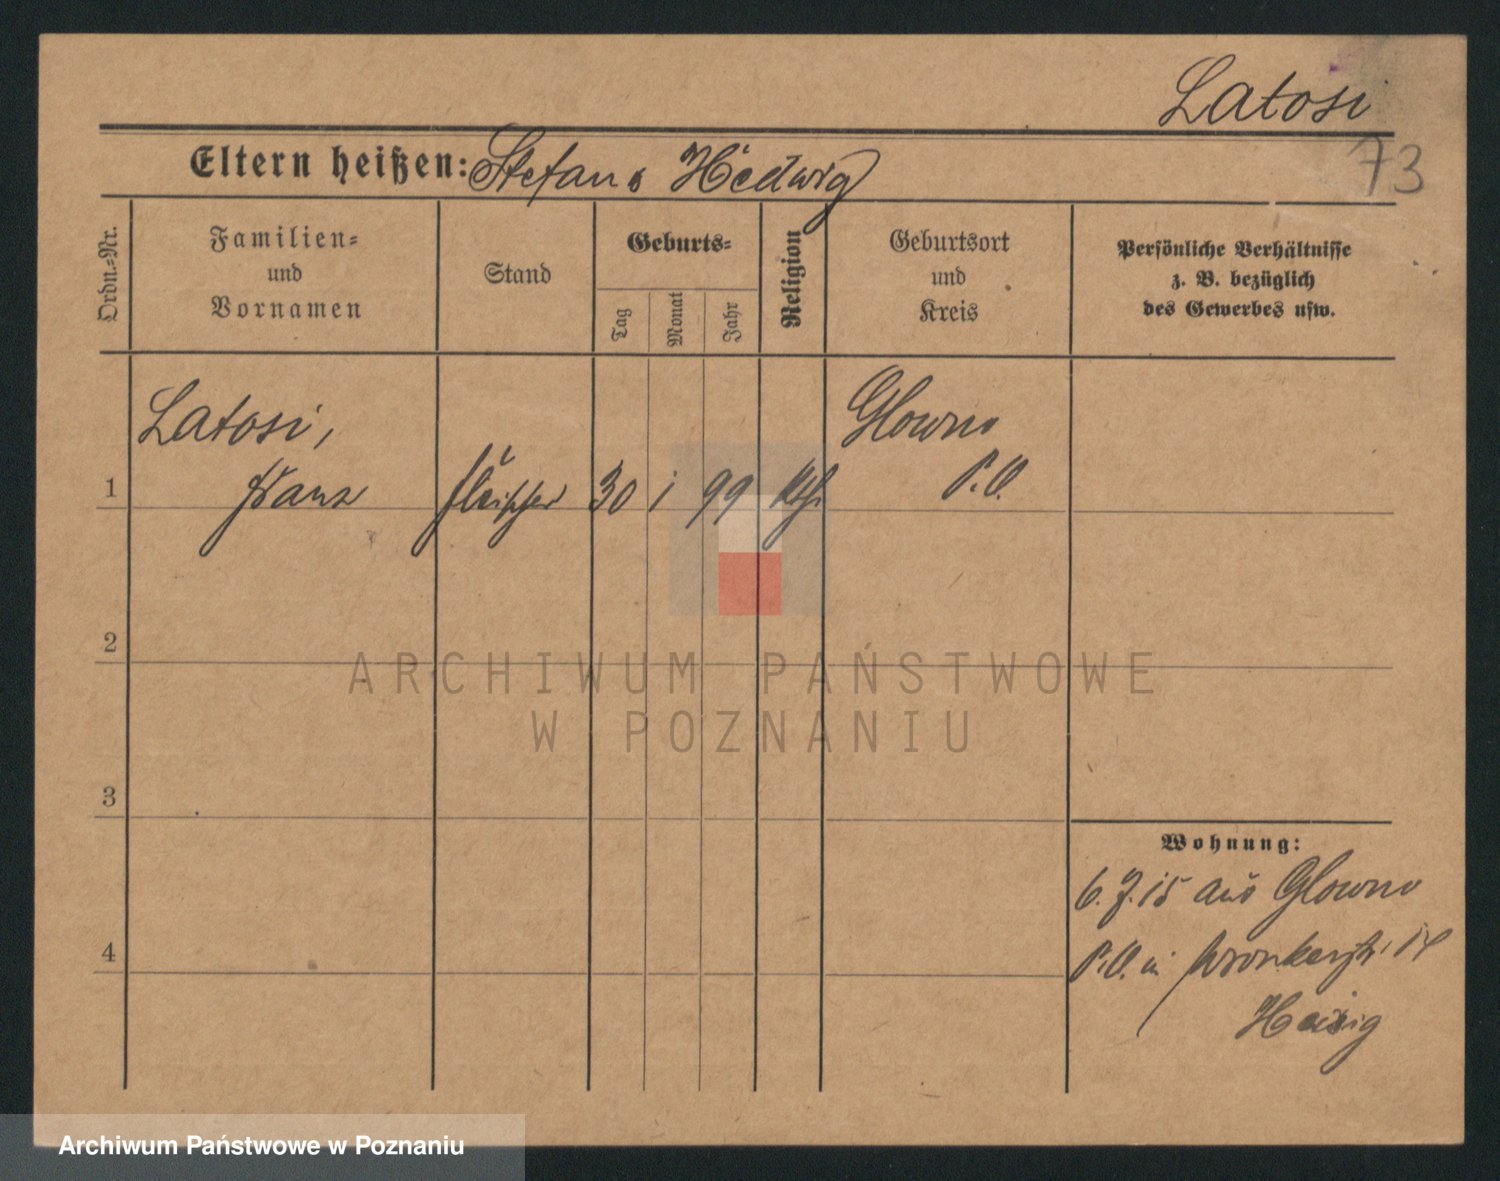 Latosi
73
Eltern heißen: Stefan u Hedwig
Ordn.-Nr.
Familien-
und
Vornamen
Stand
Geburts-
Tag
Monat
Jahr
Religion
Geburtsort
und
Kreis
Persönliche Verhältnisse
z. B. bezüglich
des Gewerbes usw.
1
Latosi,
Franz
Fleischer
30
1
99
kth.
Glowno
P.O.
2
3
4
Wohnung:
6. 7. 15 aus Glowno
P.O. in Wronkerstr.
Heisig
ARCHIWUM PAŃSTWOWE
W POZNANIU
Archiwum Państwowe w Poznaniu